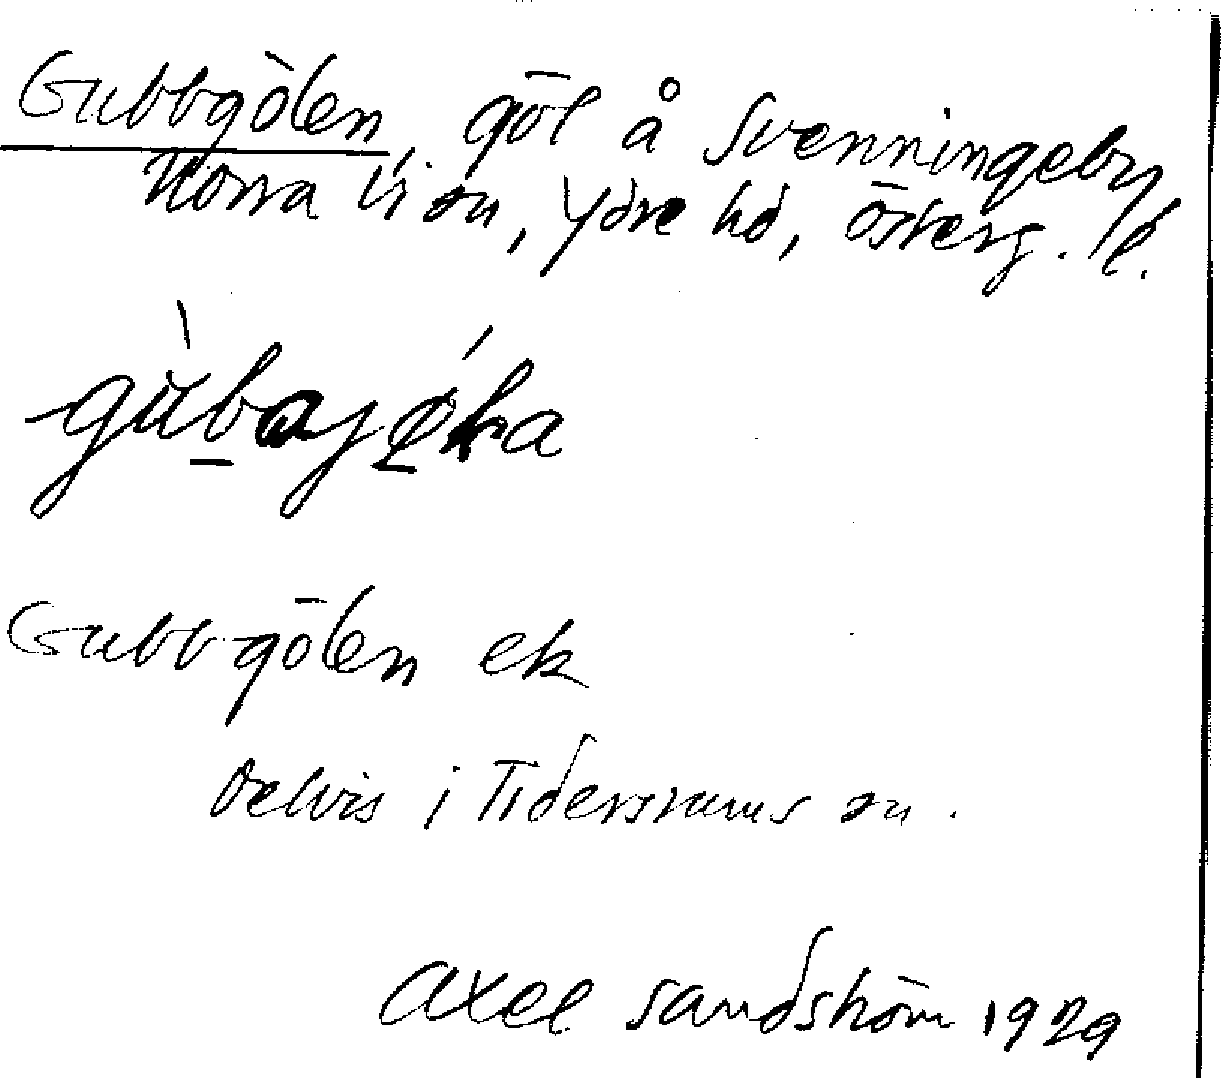 Gubbgölen, göl å Svenningeby
Norra Vi sn, Ydre hd, Österg. l.
Gubbgölen ek
delvis i Tidersrums sn.
Axel Sandström 1929